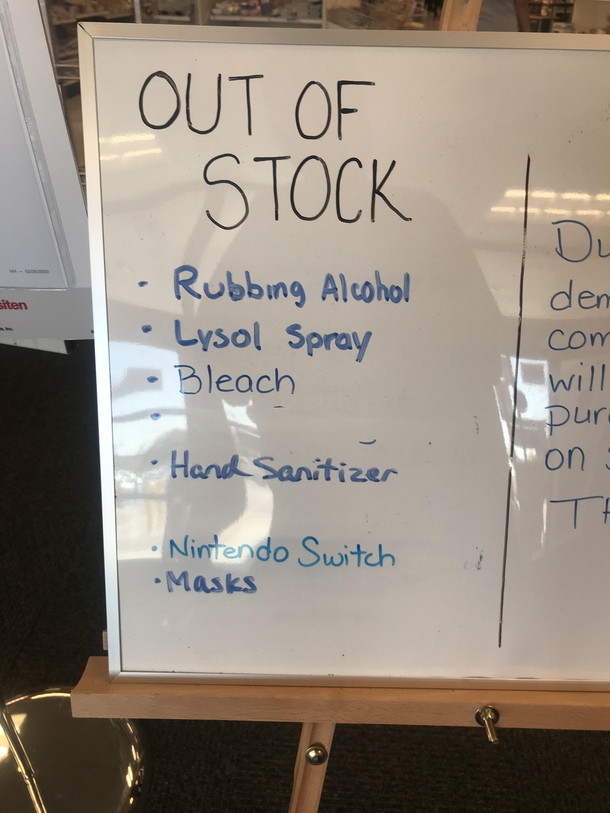 OUT OF
STOCK
· Rubbing Alcohol
· Lysol Spray
· Bleach
·
· Hand Sanitizer
· Nintendo Switch
· Masks
Du
dem
com
will
pur
on
TH
siten